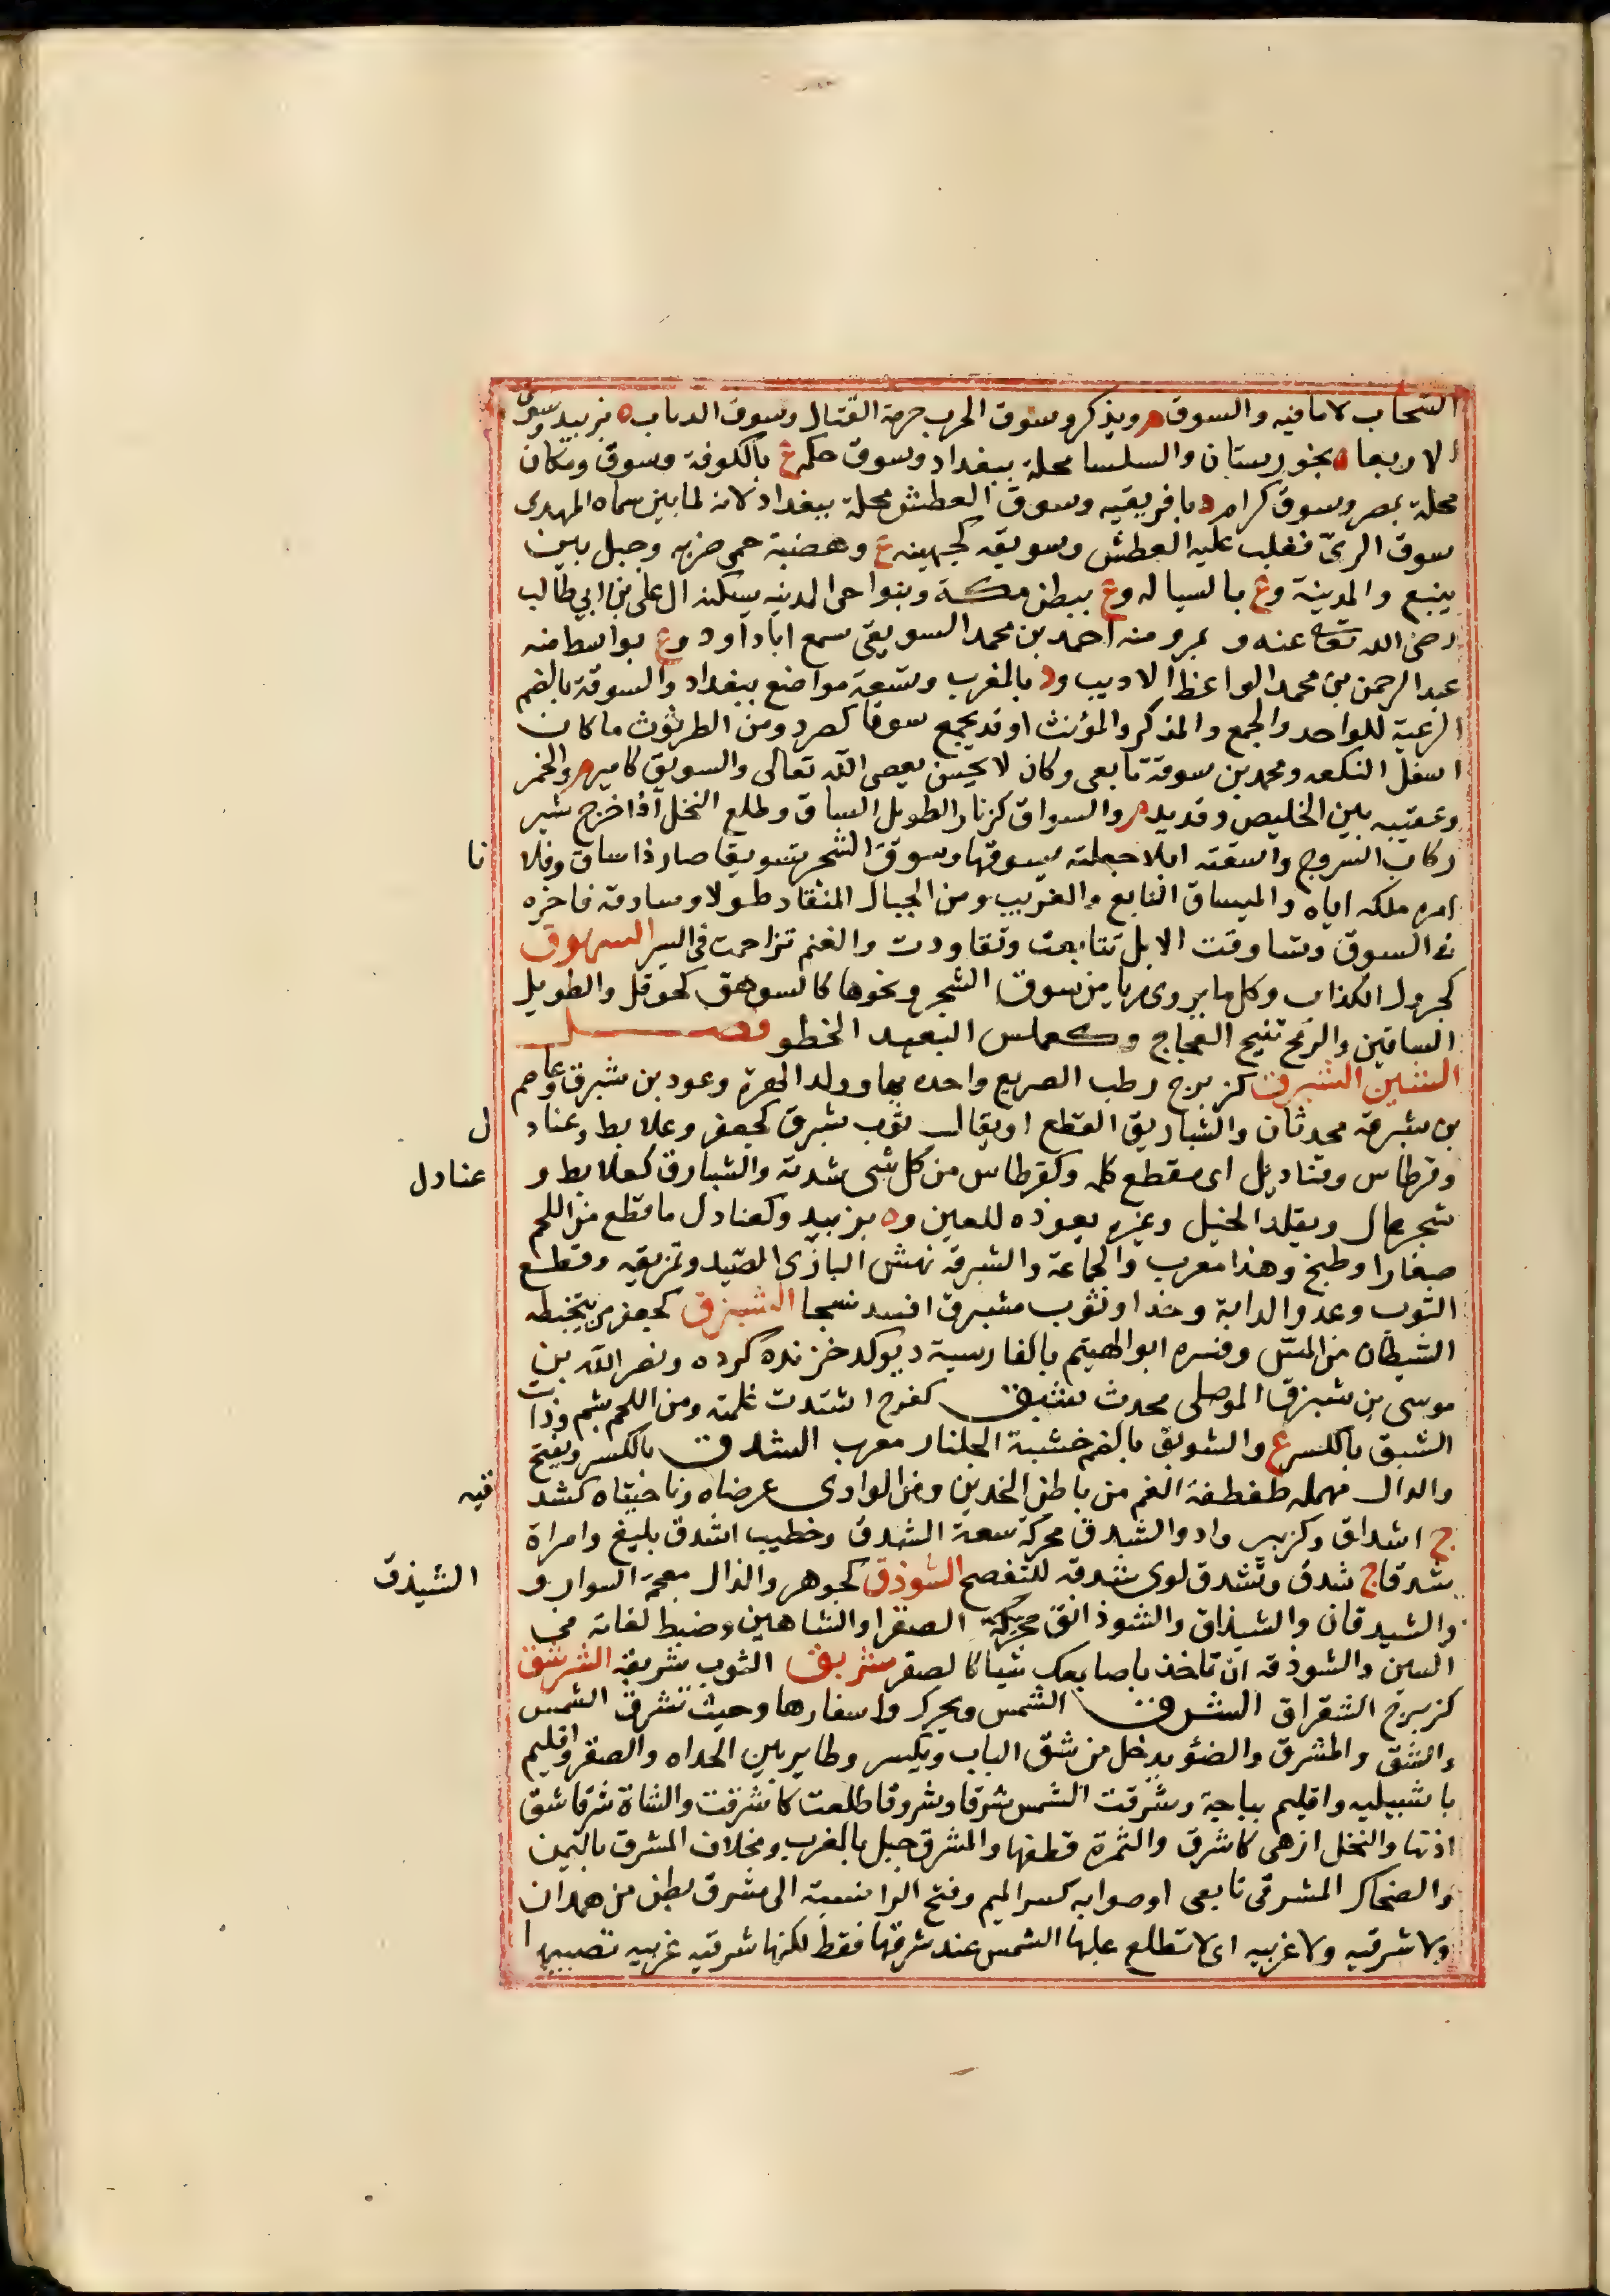 السحاب لا ما فيه والسوق م ويذكر وسوق الحرب حومة القتال وسوق الدباب ه بزبيد وسوق
الاربعا ه بخورستان والسلسا محلة ببغداد وسوق حكم ع بالكوفة وسوق ومكان
محلة بمصر وسوق كرام د بافريقيه وسوق العطش محلة ببغداد لانه لما بنى سماه المهدى
سوق الرىّ فغلب عليه العطش وسويقه كجهينه ع وهضبة حمى ضريه وجبل بين
ينبع والمدينة وع بالسياله وع ببطن مكة وبنواحى المدينه يسكنه ال على بن ابي طالب
رضى الله تعا عنه و بمرو منه احمد بن محمد السويقى سمع ابا داود وع بواسط منه
عبد الرحمن بن محمد الواعظ الاديب ود بالمغرب وتسعة مواضع ببغداد والسوقة بالضم
الرعية للواحد والجمع والمذكر والمؤنث او قد يجمع سوقا كصرد ومن الطرثوث ما كان
اسفل النكعه ومحمد بن سوقة تابعى وكان لا يحسن يعصى الله تعالى والسويق كامير م والخمر
وعقيبه بين الخليص وقديد م والسواق كزنار الطويل الساق وطلع النخل اذا اخرج شبر
ركاب السروج واسقته ابلا جعلته يسوقها وسوق الشجر تسويقا صار ذا ساق وفلا نا
امره ملكه اياه والميساق التابع والقريب ومن الجبال المنقاد طولا وساوقه فاخره
فى السوق وتساوقت الابل تتابعت وتقاودت والغنم تزاحمت فى السير السهوق
كجرول الكذاب وكل ما يروى ريا من سوق الشجر ونحوها كالسوهق كحوقل والطويل
الساقين والريح تنيح العجاج وكعملس البعيد الخطو فصل
الشين الشبرق كزبرج رطب الضريع واحده بها وولد الهرة وعود بن شبرق وعاصم
بن شبرقه محدثان والشباريق القطع او يقال ثوب شبرق كجعفر وعلابط وعناد ل
وقرطاس وقناديل اى مقطع كله وكقرطاس من كل شى شدته والشبارق كعلابط و عنادل
شجر عال ويقلد الخيل وغيره بعوذه للعين وه بزبيد وكعنادل ما قطع من اللحم
صغارا وطبخ وهذا معرب والجماعة والشبرقه نهش البازى الصيد وتمزيقه وقطع
الثوب وعدو الدابة وخدا وثوب مشبرق افسد نسجا الشبزق كجعفر من يتخبطه
الشيطان من المسّ وفسره ابو الهيثم بالفارسية ديوكد خزنده كرده ونصر الله بن
موسى بن شبزق الموصلى محدث شبق كفرح اشتدت غلمته ومن اللحم بشم وذات
الشبق بالكسر ع والشوبق بالضم خشبة الجلناز معرب الشدق بالكسر ويفتح
والدال مهمله طفطفة الفم من باطن الخدين ومن الوادى عرضاه وناحيتاه كشد قيه
ج اشداق وكزبير واد والشدق محركة سعة الشدق وخطيب اشدق بليغ وامراة
شدقا ج شدق وتشدق لوى شدقه للتفصح الشوذق كجوهر والذال معجمة السوار و الشيذق
والشيدقان والشيذاق والشوذانق محركة الصقر او الشاهين وضبط لغاته فى
السين والشوذقه ان تاخذ باصابعك شيا كالصقر شربق الثوب شربقه الشرشق
كزبرج الشقراق الشرق الشمس ويحرك واسفارها وحيث تشرق الشمس
والشق والمشرق والضؤ يدخل من شق الباب ويكسر وطاير بين الحداه والصقر واقليم
باشبيليه واقليم بباجة وشرقت الشمس شرقا وشروقا طلعت كاشرقت والشاة شرقا شق
اذنها والنخل ازهى كاشرق والثمرة قطفها والمشرق جبل بالغرب ومخلاف المشرق باليمن
والضحاك المشرقى تابعى او صوابه كسر الميم وفتح الرا نسبة الى مشرق بطن من همدان
ولا شرقيه ولا غربيه اى لا تطلع عليها الشمس عند شرقها فقط لكنها شرقيه غربيه تصيبها